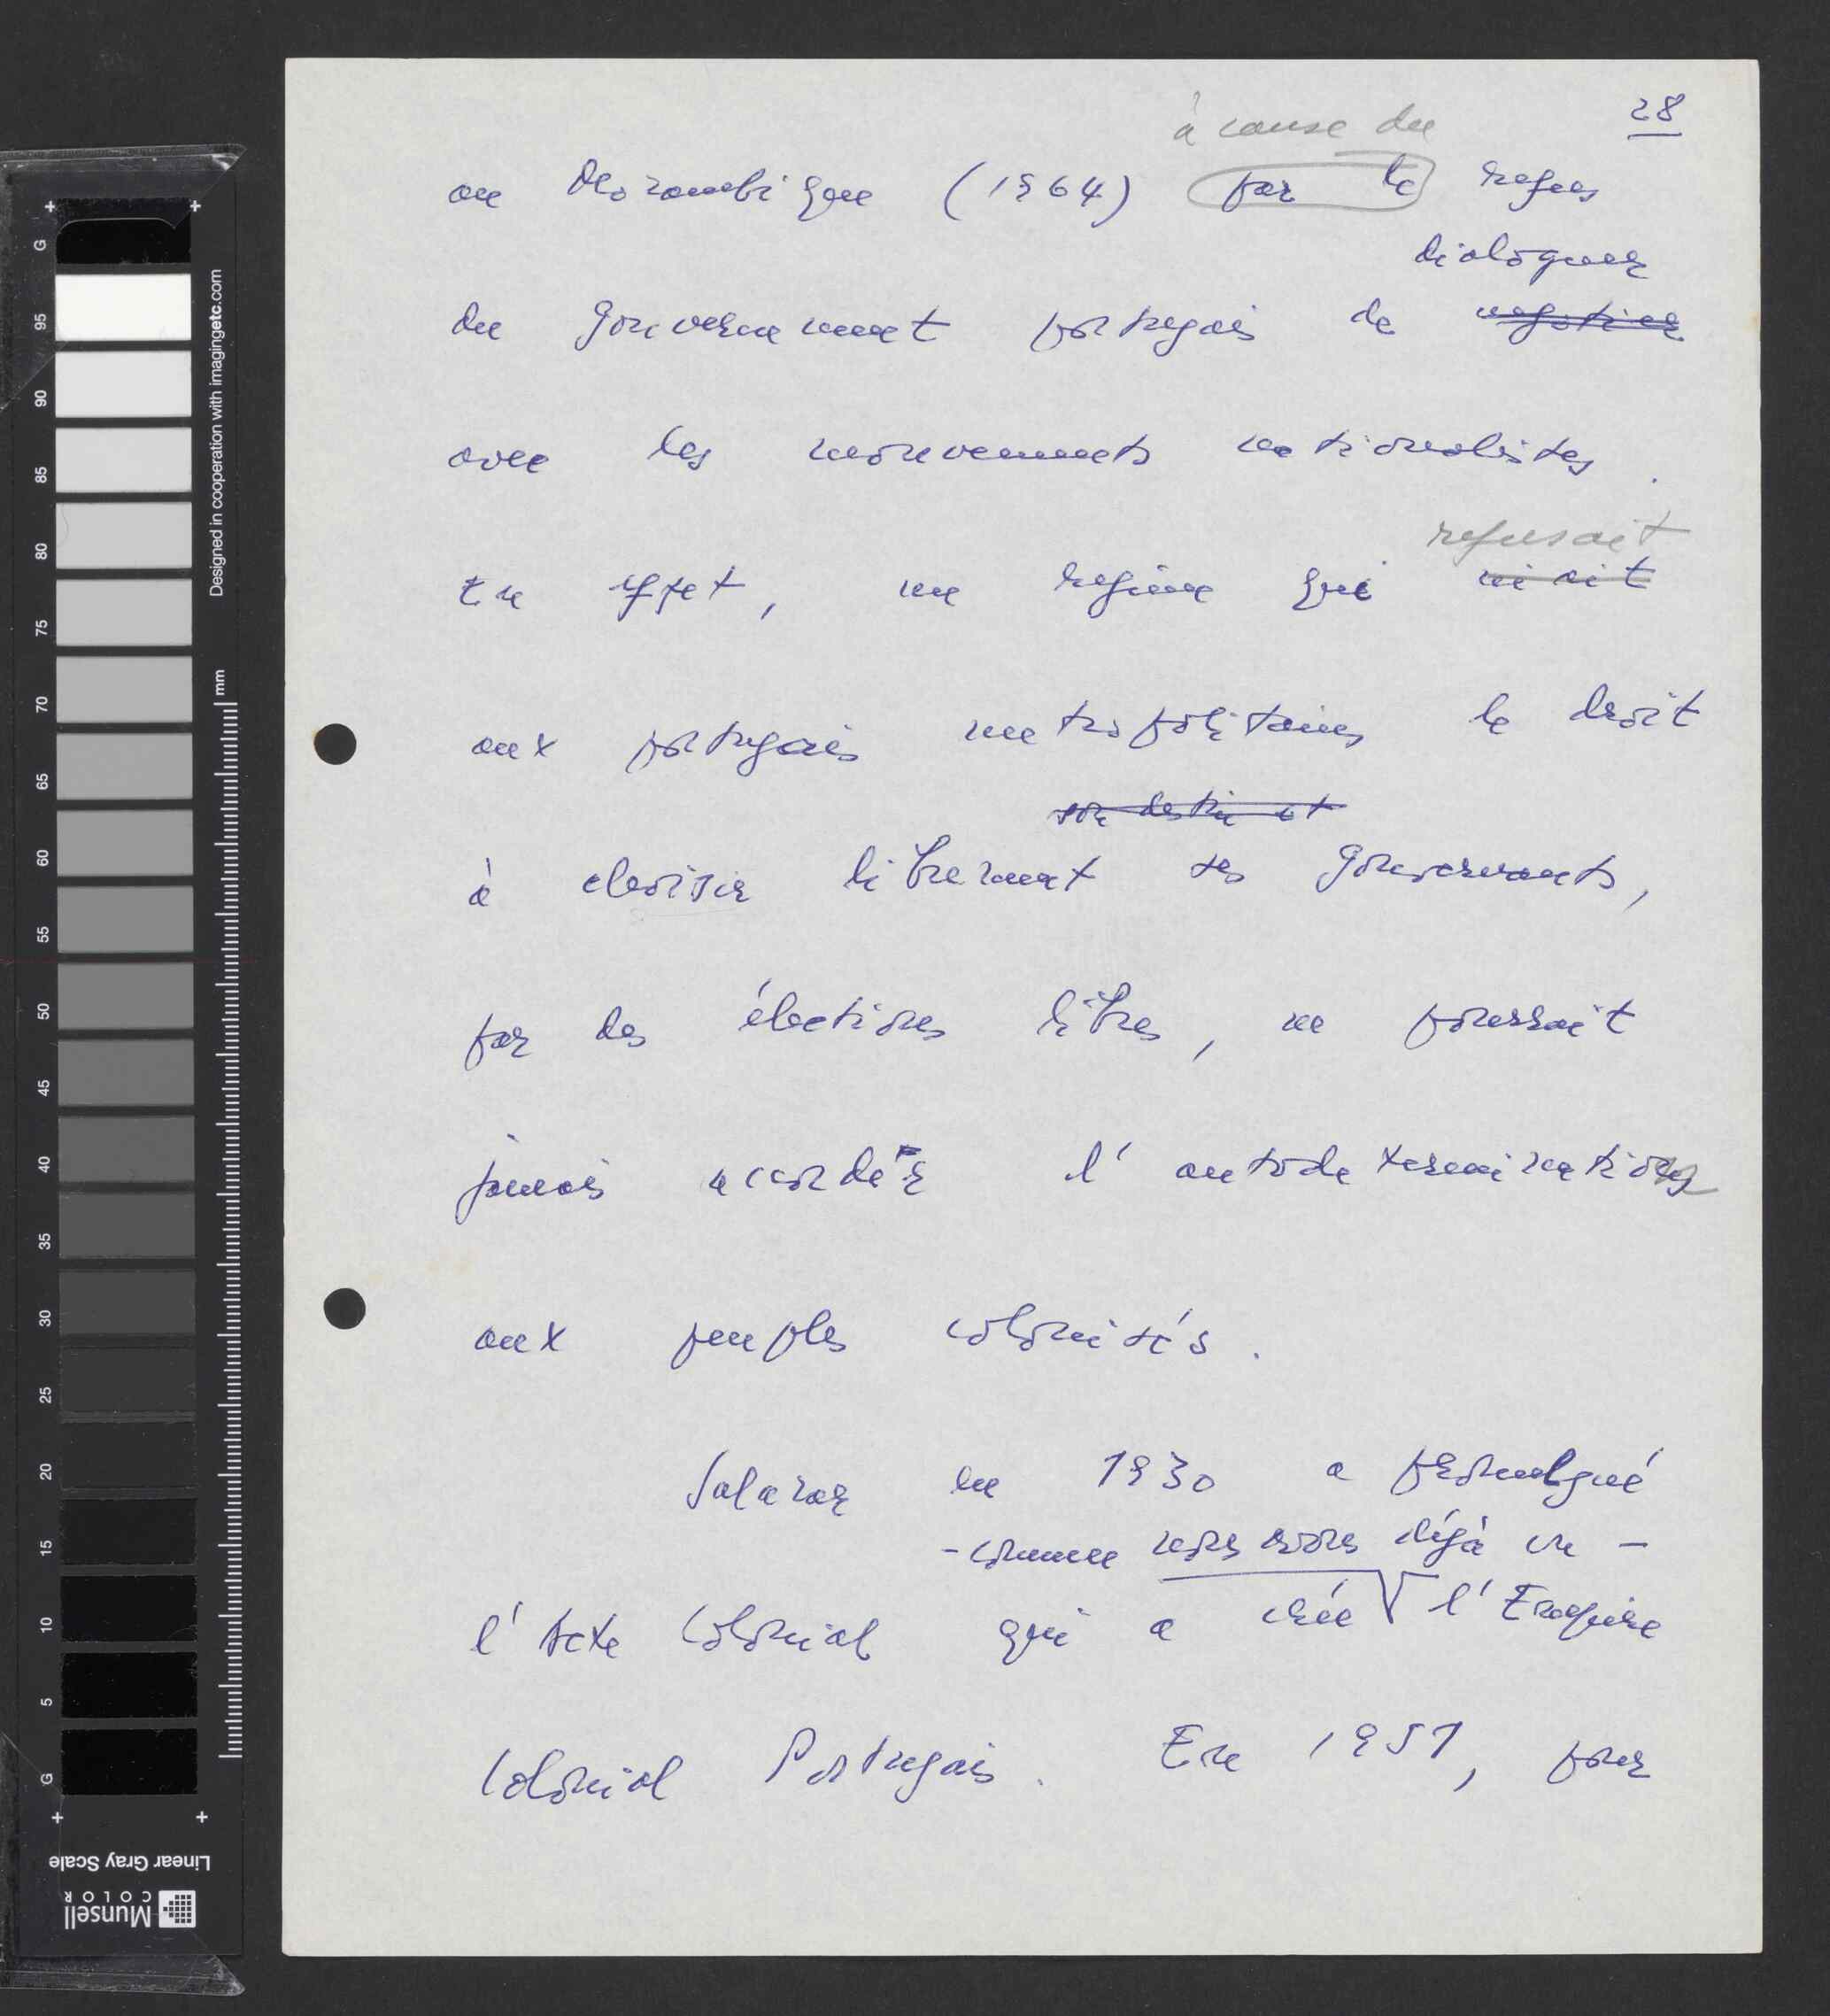 28
à cause du
au Mozambique (1964) par le refus
dialoguer
du gouvernement portugais de negotier
avec les mouvements nationalistes.
refusait
En effet, un regime qui niait
aux portugais metropolitains le droit
son destin et
à choisir librement ses gouvernants,
par des élections libres, ne pourrait
jamais accordér l'autodetermination
aux peuples colonisés.
Salazar en 1930 a promulgué
- comme nous avons déjà vu -
l'Acte Colonial qui a créé l'Empire
Colonial Portugais. En 1951, pour
G
95
90
85
80
75
70
65
60
55
50
45
40
35
30
25
20
15
10
5
G
mm
Designed in cooperation with imagingetc.com
Linear Gray Scale
Munsell
COLOR